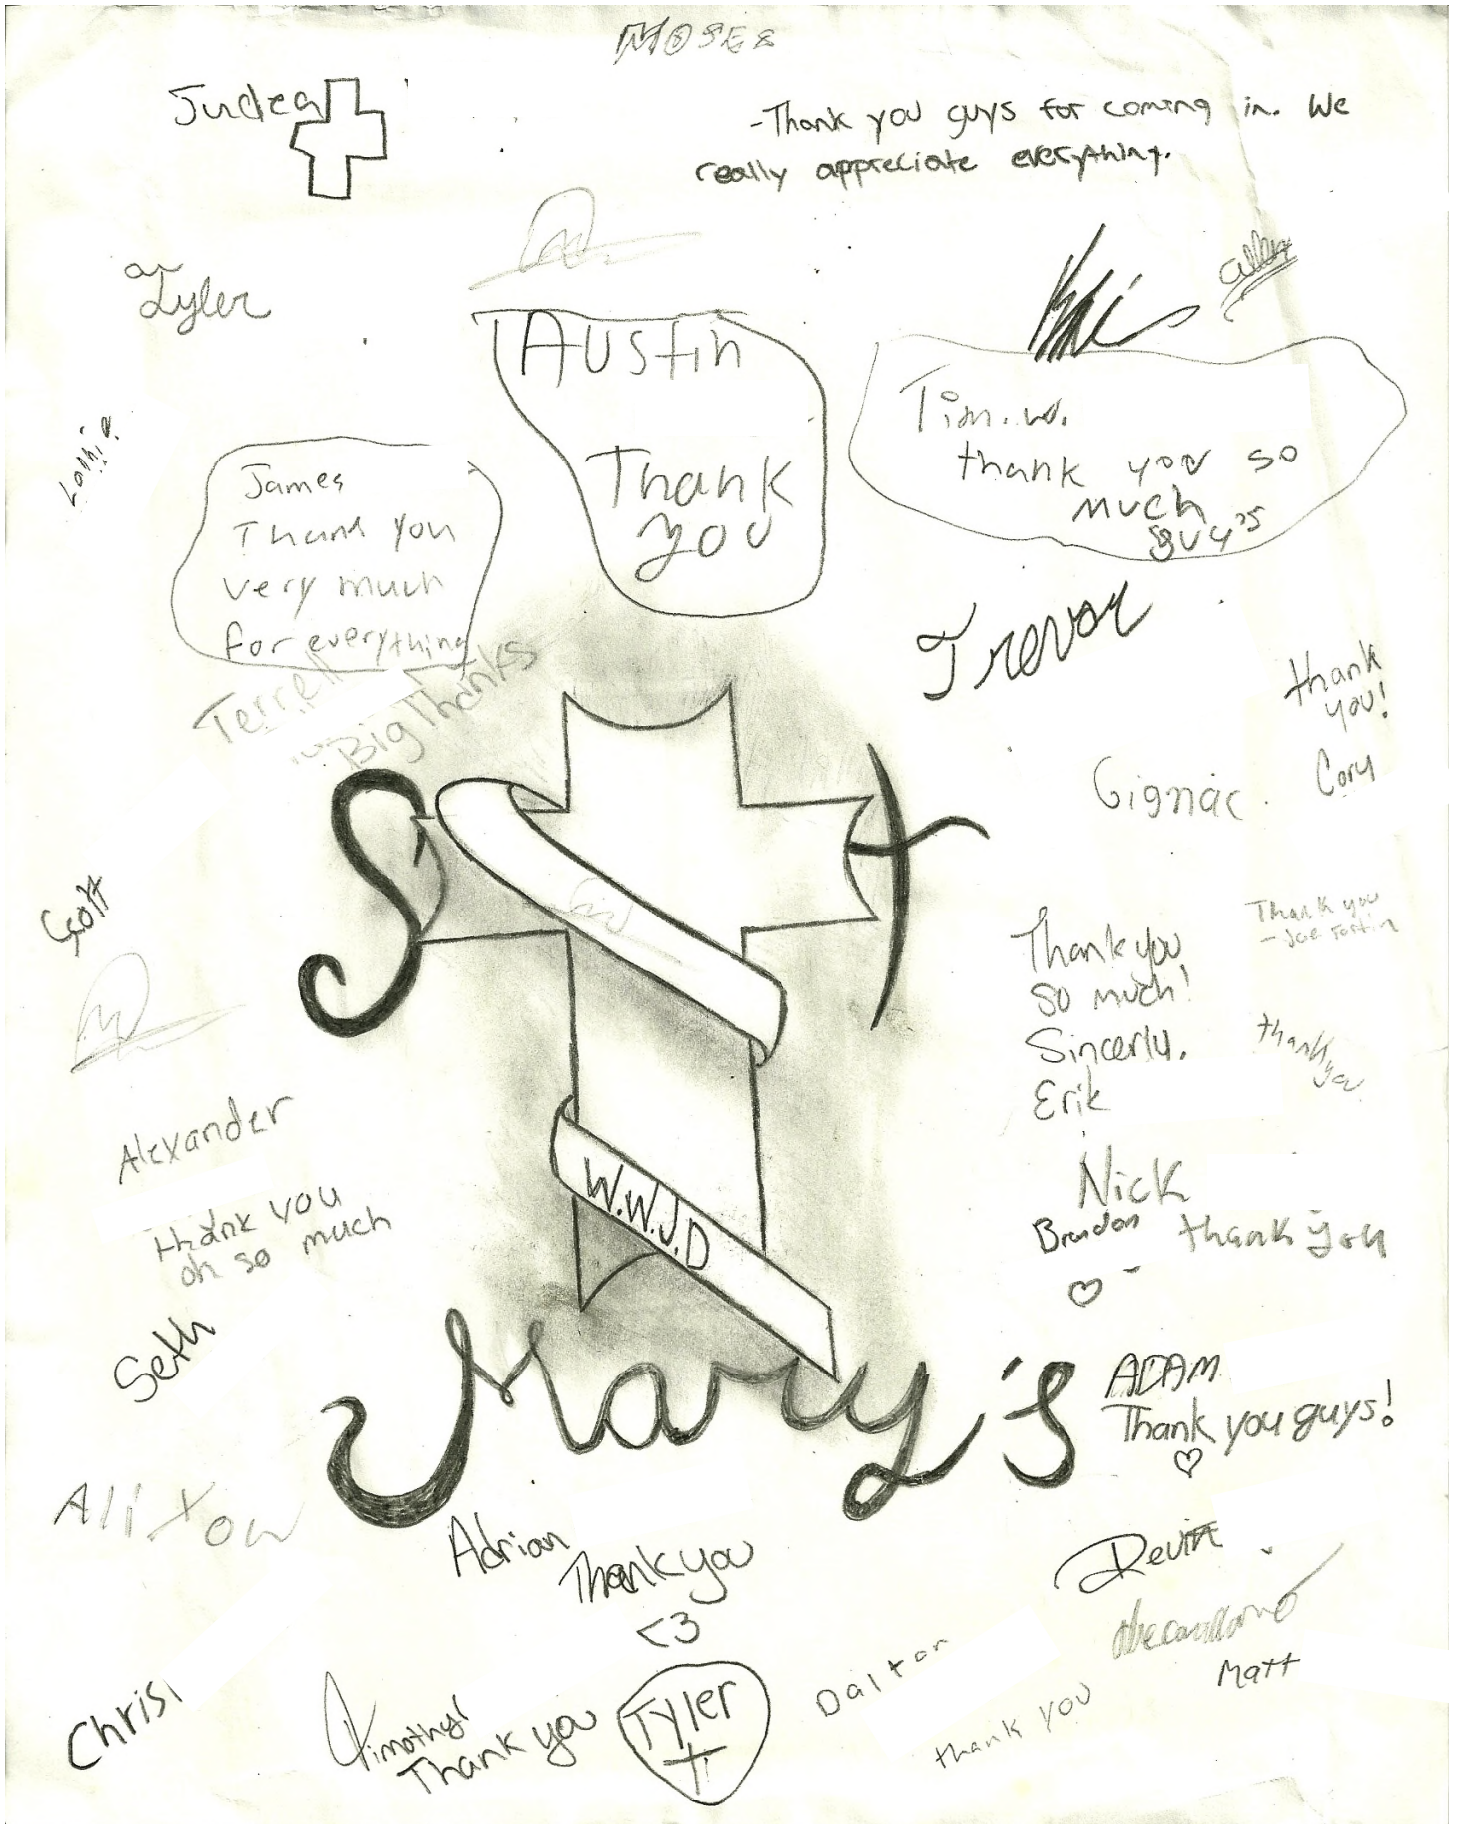 MOSES
Judea
-Thank you guys for coming in. We
really appreciate everything.
Tyler
Austin
Thank
you
Tim.w.
thank you so
much
guys
James
Thank you
very much
for everything
Terrell
Big Thanks
Trevor
thank
you!
Cory
Gignac.
St
Scott
Thank you
so much!
Sincerly.
Erik
Thank you
- Joe Fortin
thank
you
Alexander
thank you
oh so much
Nick
Brandon
thank you
W.W.J.D
Seth
Mary's
ADAM
Thank you guys!
Ali Tow
Adrian
Thank you
<3
Devin
Matt
Chris
Timothy!
Thank you
Tyler
Dalton
thank you